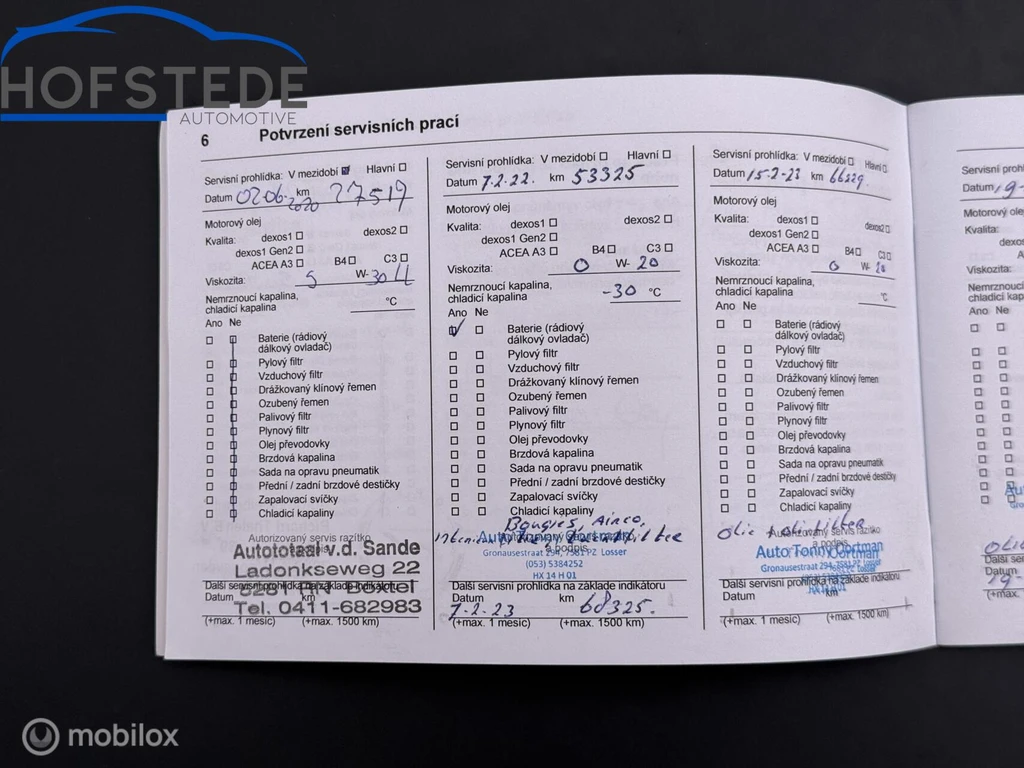 HOFSTEDE
AUTOMOTIVE
6
Potvrzení servisních prací
Servisní prohlídka: V mezidobí Hlavní
Datum 0206-2020 km 27519
Motorový olej
Kvalita: dexos1 dexos2
dexos1 Gen2
ACEA A3 B4 C3
Viskozita: 5 W- 30
Nemrznoucí kapalina,
chladicí kapalina °C
Ano Ne
Baterie (rádiový
dálkový ovladač)
Pylový filtr
Vzduchový filtr
Drážkovaný klínový řemen
Ozubený řemen
Palivový filtr
Plynový filtr
Olej převodovky
Brzdová kapalina
Sada na opravu pneumatik
Přední / zadní brzdové destičky
Zapalovací svíčky
Chladicí kapaliny
Autorizovaný servis razítko
Autototaal v.d. Sande
Ladonkseweg 22
5281 RN Boxtel
Další servisní prohlídka na základě indikátoru
Datum km
Tel. 0411-682983
(+max. 1 měsíc) (+max. 1500 km)
Servisní prohlídka: V mezidobí Hlavní
Datum 7-2-22. km 53325
Motorový olej
Kvalita: dexos1 dexos2
dexos1 Gen2
ACEA A3 B4 C3
Viskozita: 0 W- 20
Nemrznoucí kapalina,
chladicí kapalina -30 °C
Ano Ne
Baterie (rádiový
dálkový ovladač)
Pylový filtr
Vzduchový filtr
Drážkovaný klínový řemen
Ozubený řemen
Palivový filtr
Plynový filtr
Olej převodovky
Brzdová kapalina
Sada na opravu pneumatik
Přední / zadní brzdové destičky
Zapalovací svíčky
Chladicí kapaliny
Bougies, Airco,
Gronausestraat 294, 7581 PZ Losser
(053) 5384252
HX 14 H 01
Další servisní prohlídka na základě indikátoru
Datum km
7-2-23 68325.
(+max. 1 měsíc) (+max. 1500 km)
Servisní prohlídka: V mezidobí Hlavní
Datum 15-2-23 km 66529.
Motorový olej
Kvalita: dexos1 dexos2
dexos1 Gen2
ACEA A3 B4 C3
Viskozita: 0 W- 20
Nemrznoucí kapalina,
chladicí kapalina °C
Ano Ne
Baterie (rádiový
dálkový ovladač)
Pylový filtr
Vzduchový filtr
Drážkovaný klínový řemen
Ozubený řemen
Palivový filtr
Plynový filtr
Olej převodovky
Brzdová kapalina
Sada na opravu pneumatik
Přední / zadní brzdové destičky
Zapalovací svíčky
Chladicí kapaliny
Olie + oliefilter
Autorizovaný servis razítko
a podpis
Auto Tonny Oortman
Gronausestraat 294, 7581 PZ Losser
Další servisní prohlídka na základě indikátoru
Datum km
(+max. 1 měsíc) (+max. 1500 km)
Servisní
Datum
Motorový
Kvalita:
Viskozita:
Nemrznoucí
chladicí
Ano Ne
Další
Datum
(+max.
mobilox